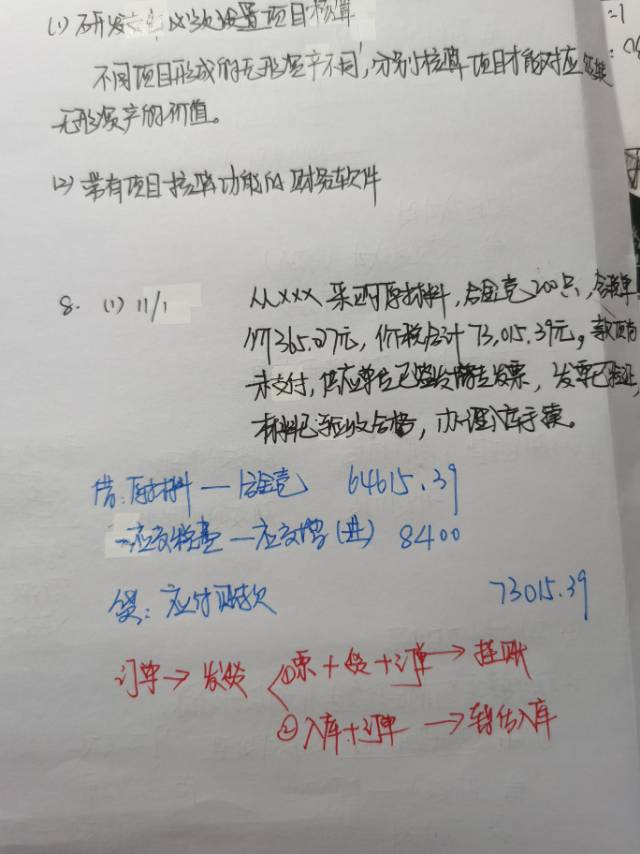 (1) 研发支出必须设置项目核算
不同项目形成的无形资产不同,分别核算项目才能对应归集
无形资产的价值。
(2) 带有项目核算功能的财务软件
8. (1) 11/1
从XXX采购原材料,合金壳200只,含税单
价365.07元,价税合计73,015.39元。款项尚
未支付,供应单位已开发票,发票已验证,
材料已验收合格,办理入库手续。
借:原材料—合金壳 64615.39
—应交税费—应交增(进) 8400
贷:应付账款 73015.39
订单→发货
①票+货+订单→挂账
②入库+订单→暂估入库